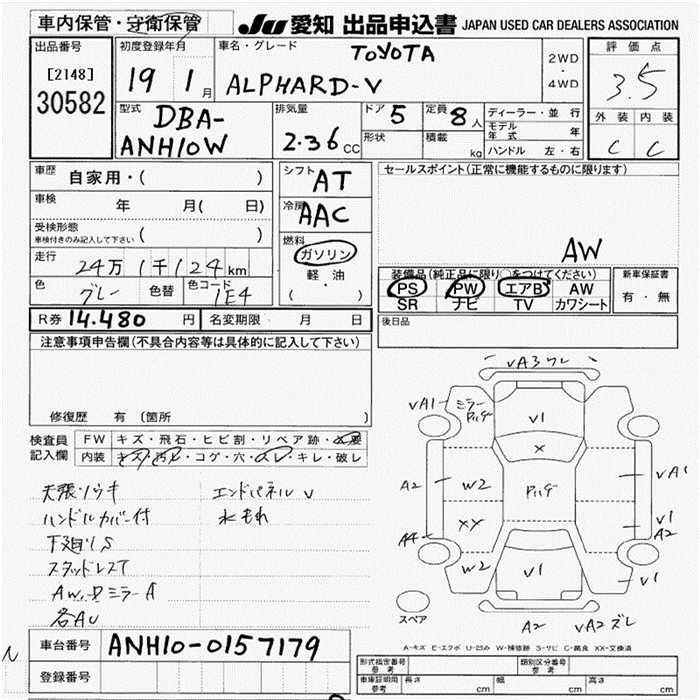 車内保管・守衛保管
JU 愛知 出品申込書 JAPAN USED CAR DEALERS ASSOCIATION
出品番号 [2148] 30582
初度登録年月 19 1月
車名・グレード TOYOTA ALPHARD-V
2WD・4WD
評価点 3.5
外装 内装
C C
型式 DBA-ANH10W
排気量 2.36cc
ドア 5
形状
定員 8人
積載 kg
ディーラー・並行
モデル年式 年
ハンドル 左・右
車歴 自家用・( )
車検 年 月( 日)
受検形態 ( )
車検付きのみ記入して下さい
走行 24万1千124km
色 グレー 色替 色コード 1E4
シフト AT
冷房 AAC
燃料 ガソリン
軽・油
( )
セールスポイント(正常に機能するものに限ります)
AW
装備品(純正品に限り○をつけてください)
PS PW エアB AW
SR ナビ TV カワシート
新車保証書
有・無
R券 14.480 円 名変期限 月 日
後日品
注意事項申告欄(不具合内容等は具体的に記入して下さい)
修復歴 有 (箇所 )
検査員記入欄
FW キズ・飛石・ヒビ割・リペア跡・
内装 キズ・汚れ・コゲ・穴・スレ・キレ・破レ
天張ソウキ エンドパネルV
ハンドルカバー付 水もれ
下廻りS
スタッドレスT
ミラーA
各AU
VA3 ワレ
VA1 ミラー
V1
X
A2 W2 VA1
XY V1
A2
A4 W2 V1 V1
A2 VA2 ズレ
スペア
A-キズ E-エクボ U-凹み W-補修跡 S-サビ C-腐食 XX-交換済
車台番号 ANH10-0157179
登録番号
形式指定番号 参考 類別区分番号 参考
車庫証明用参考 長さ cm 幅 cm 高さ cm